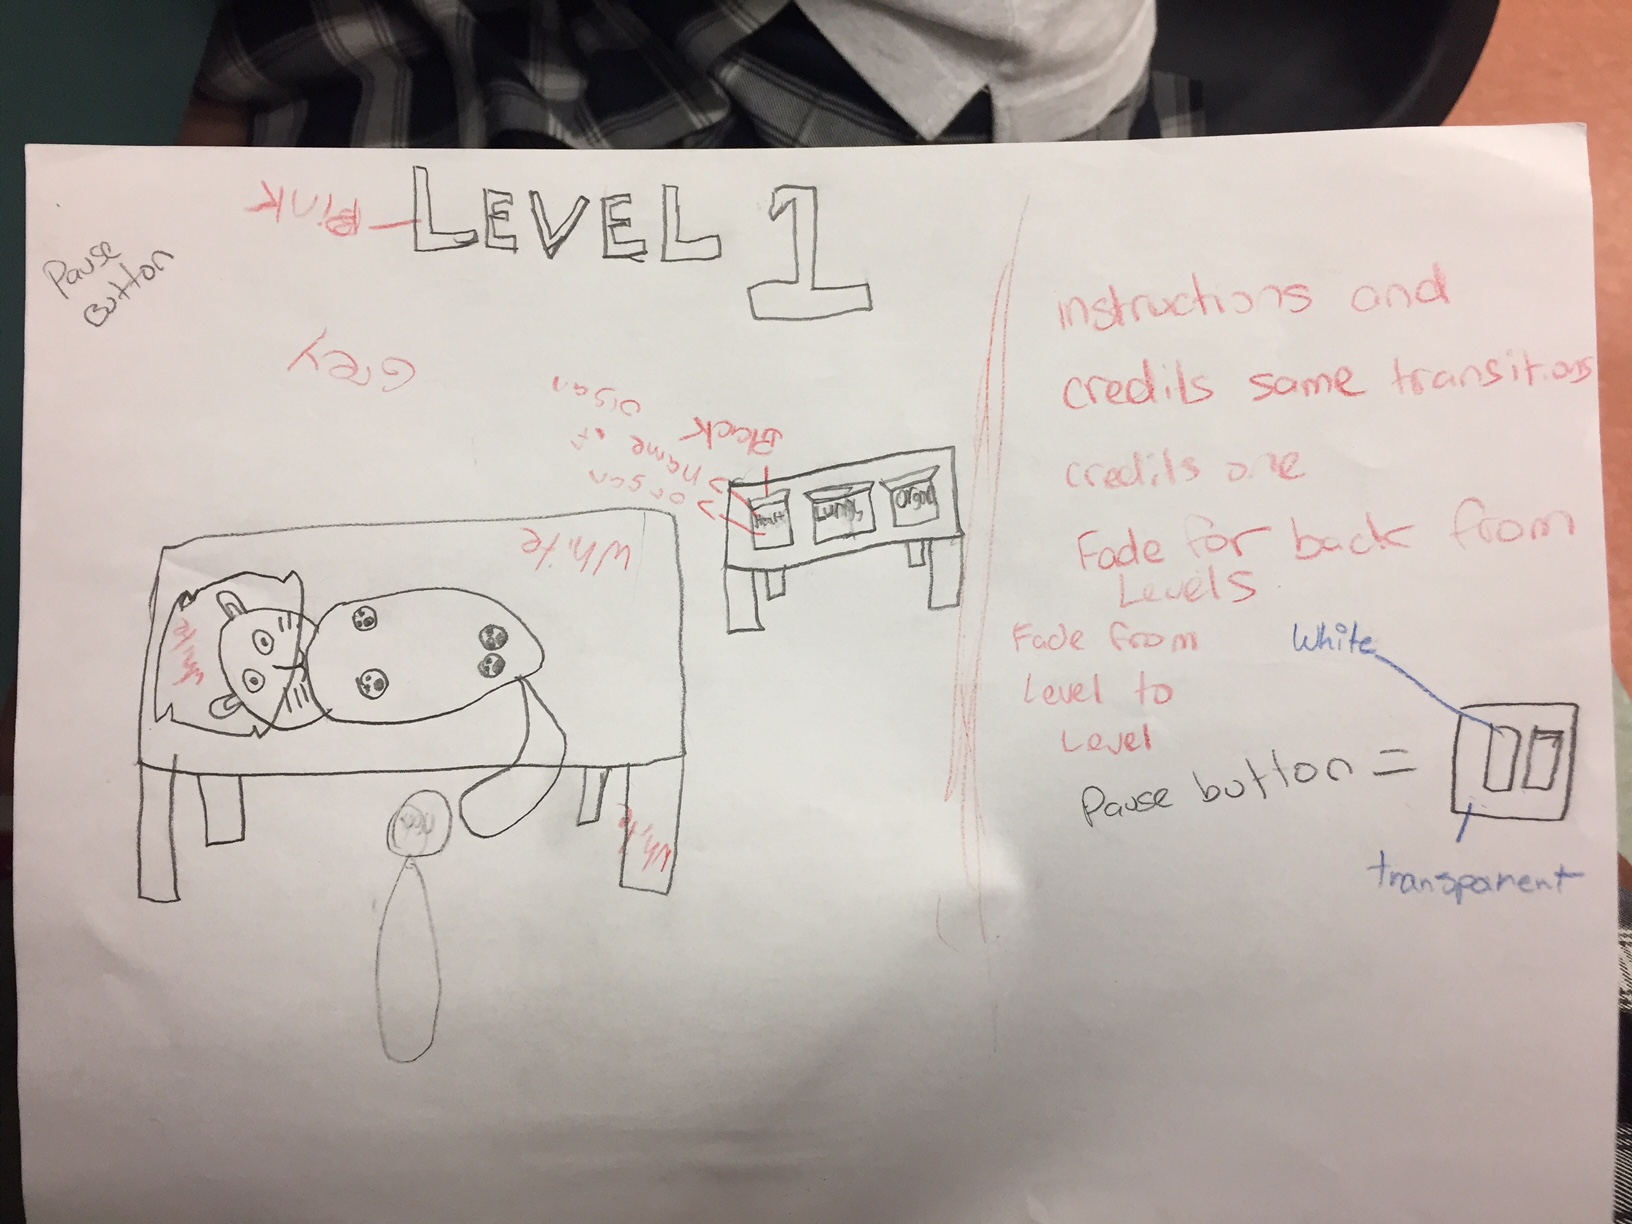 Pause
button
Pink
LEVEL 1
Grey
White
White
White
organ
name of
organ
Black
Heart
Organ
instructions and
credils same transitions
credils one
Fade for back from
Levels
Fade from
Level to
Level
Pause button =
White
transparent